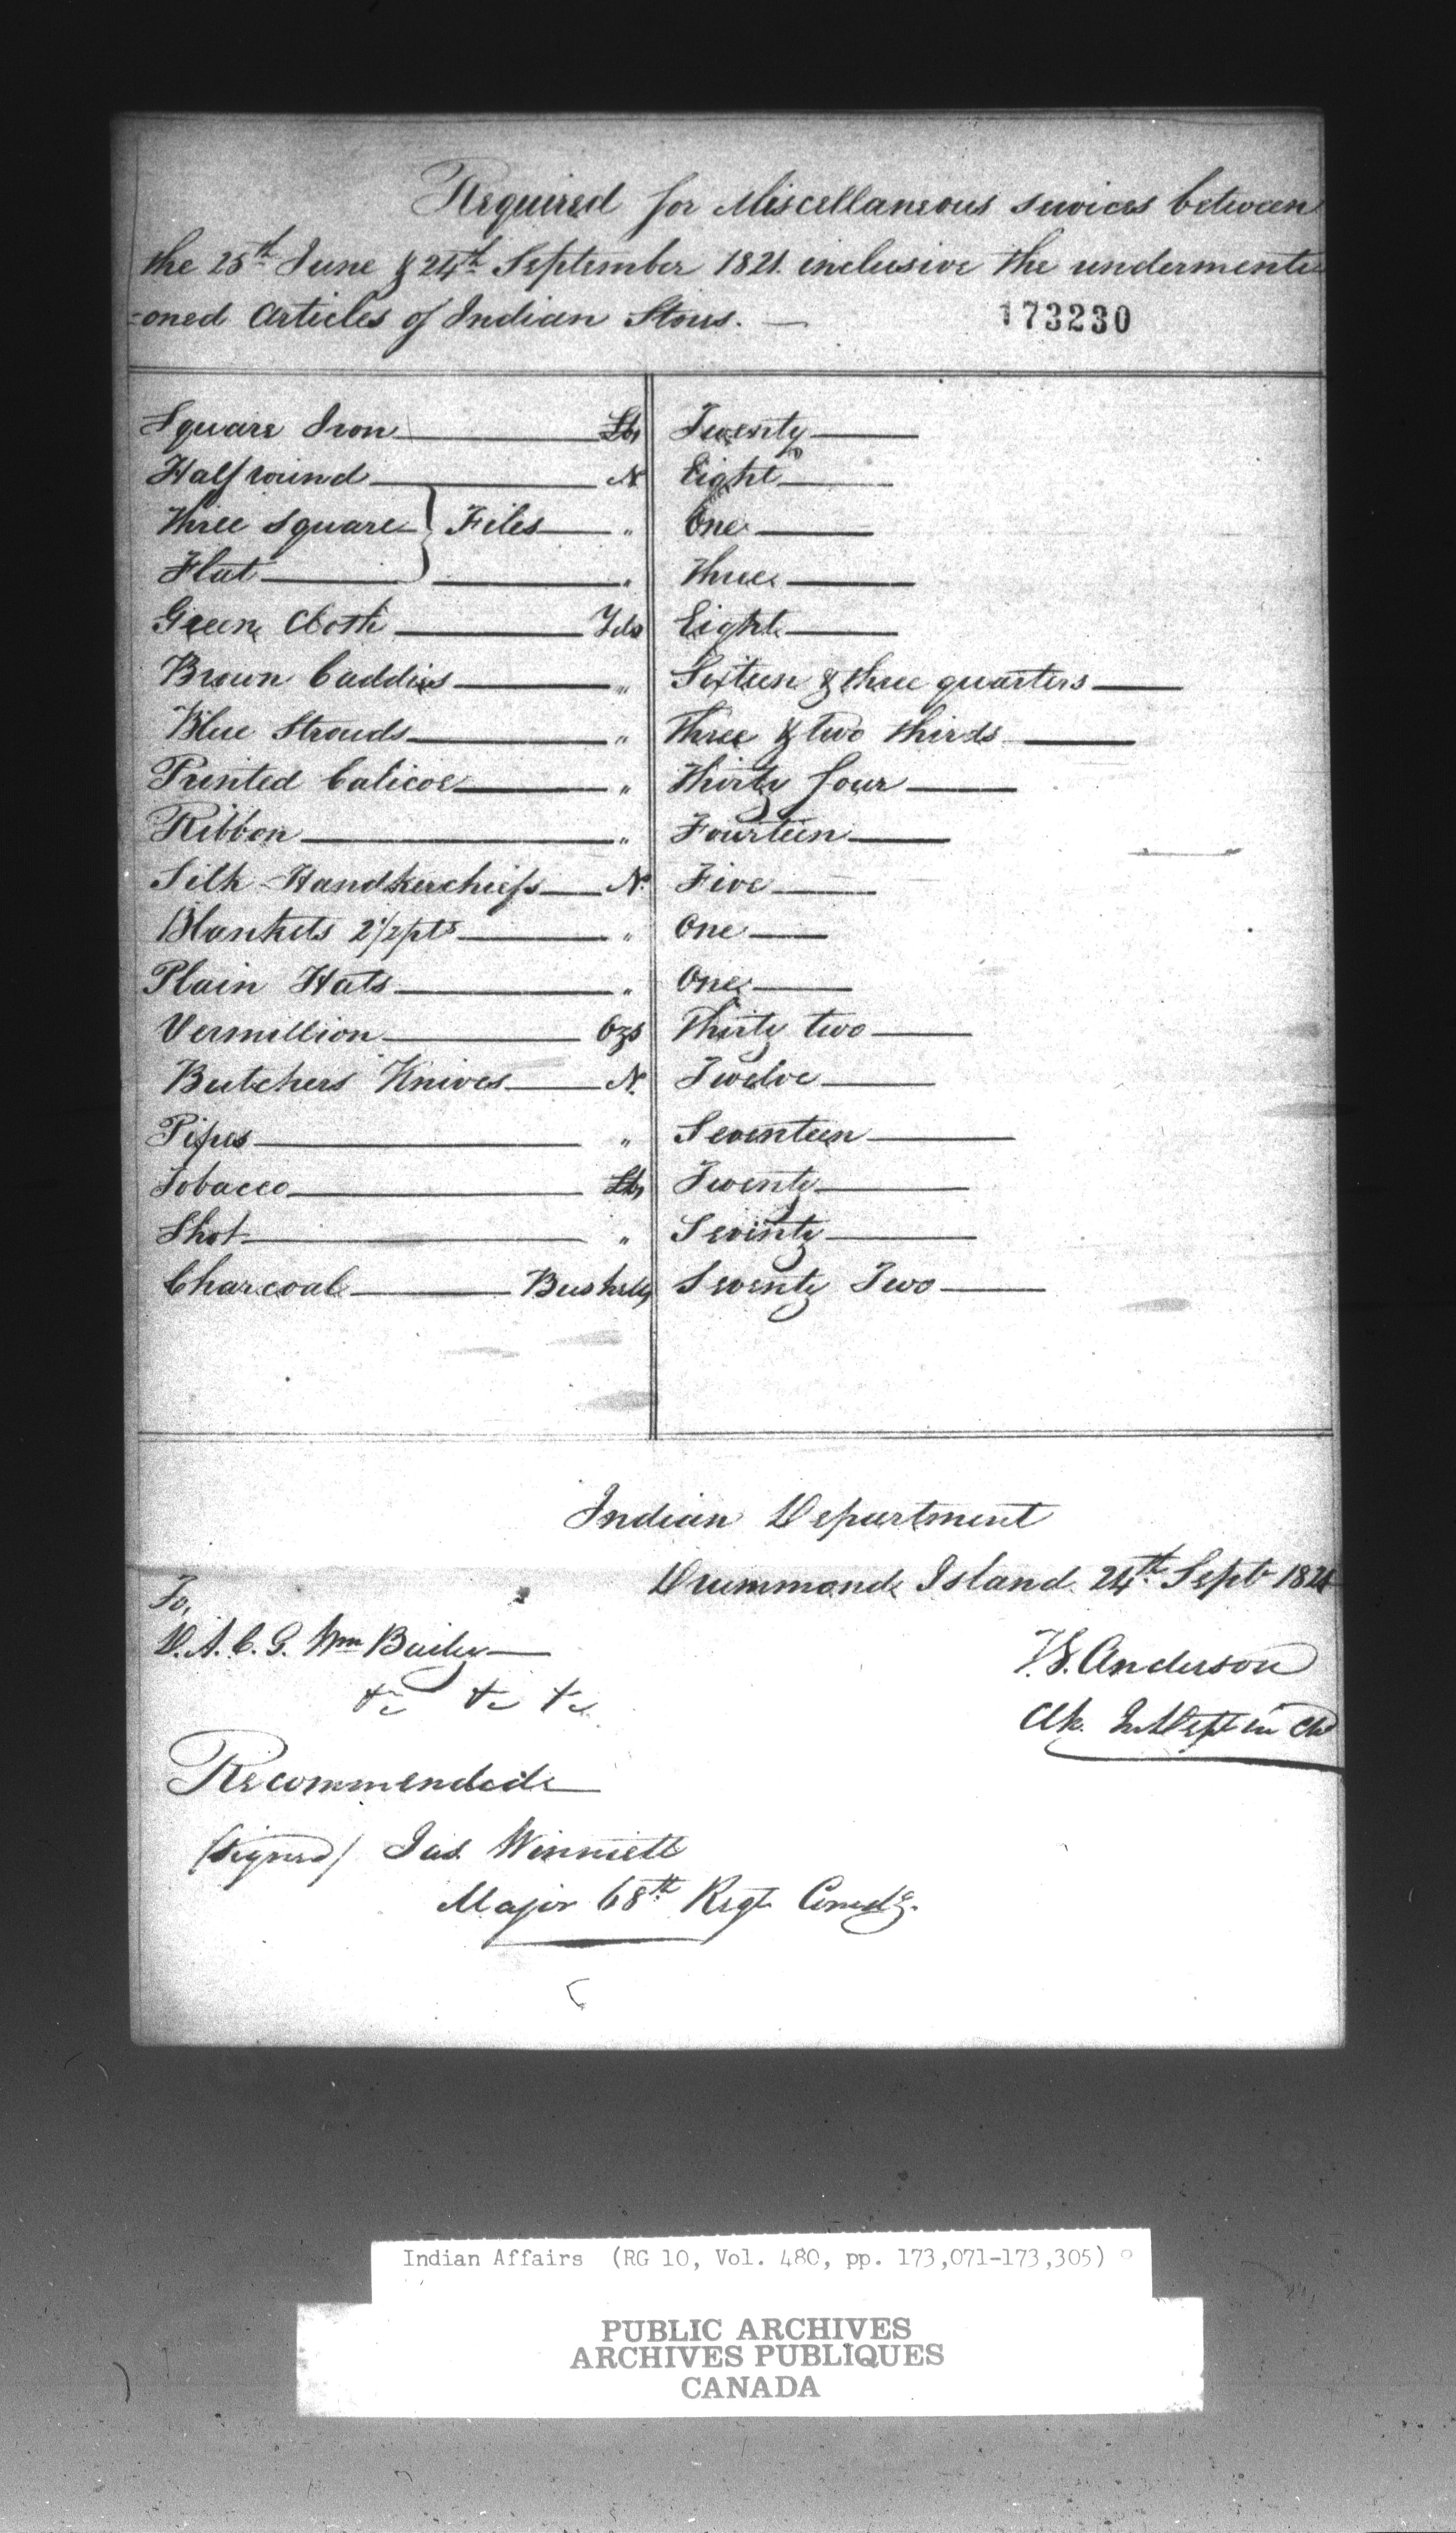 Required for Miscellaneous services between
the 25th June & 24th September 1821. inclusive the undermenti
=oned Articles of Indian Stores. —
173230
Square Iron — Lbs Twenty —
Half round — No Eight —
Three Square } Files — " One —
Flat — " Three —
Green Cloth — Yds Eight —
Brown Caddies — " Sixteen & three quarters —
Blue Strouds — " Three & two thirds —
Printed Calicoe — " Thirty four —
Ribbon — " Fourteen —
Silk Handkerchiefs — No. Five —
Blankets 2 1/2 pts — " One —
Plain Hats — " One —
Vermillion — Ozs Thirty two —
Butchers Knives — No. Twelve —
Pipes — " Seventeen —
Tobacco — Lbs Twenty —
Shot — " Seventy —
Charcoal — Bushels Seventy Two —
Indian Department
Drummond Island 24th Sept 1821
To,
D.A.C.G. Wm Bailey —
&c &c &c
T.G. Anderson
Clk. In Dept in Ch
Recommended
(Signed) Jas. Winniett
Major 68th Regt Comdg.
Indian Affairs (RG 10, Vol. 480, pp. 173,071-173,305)
PUBLIC ARCHIVES
ARCHIVES PUBLIQUES
CANADA